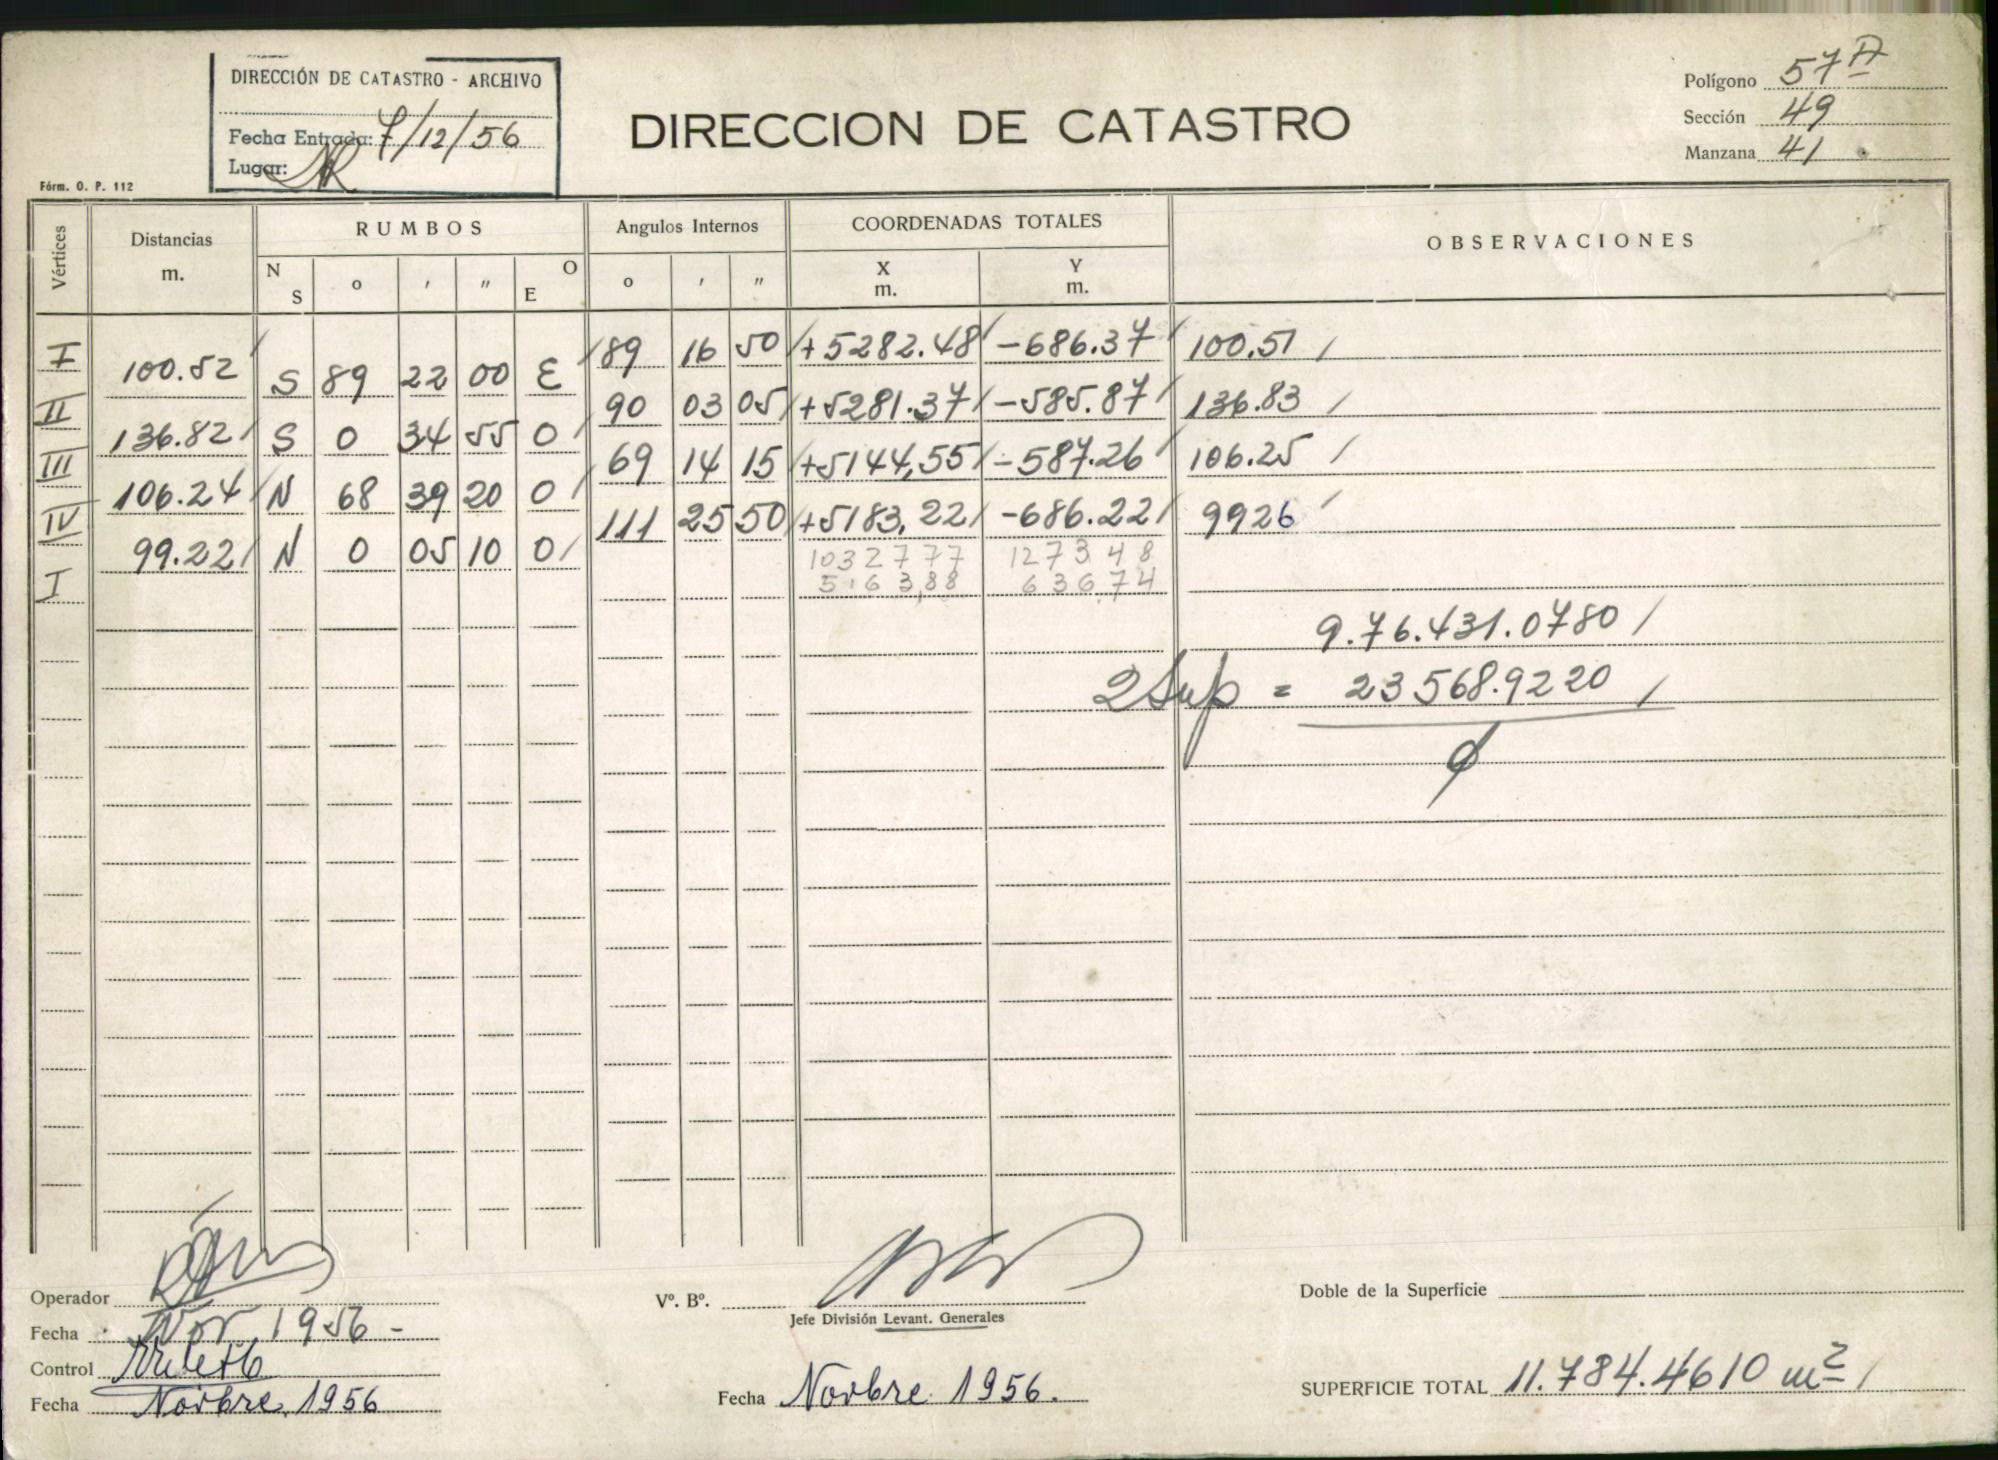 DIRECCIÓN DE CATASTRO - ARCHIVO
Fecha Entrada: 7/12/56
Lugar:
Fórm. O. P. 112
DIRECCION DE CATASTRO
Polígono 57 A
Sección 49
Manzana 41
Vértices Distancias m. RUMBOS Angulos Internos COORDENADAS TOTALES OBSERVACIONES
N S o ' " O E o ' " X m. Y m.
I 89 16 50 +5282.48 -686.37 100.51
100.52 S 89 22 00 E
II 90 03 05 +5281.37 -585.87 136.83
136.82 S 0 34 55 O
III 69 14 15 +5144,55 -587.26 106.25
106.24 N 68 39 20 O
IV 111 25 50 +5183,22 -686.22 9926
99.22 N 0 05 10 O
1032777 127348
I 5163,88 636.74
9.76.431.0780
2 Sup = 23568.9220
Operador
Fecha Nov. 1956 -
Control
Fecha Novbre. 1956
Vº. Bº.
Jefe División Levant. Generales
Fecha Novbre. 1956.
Doble de la Superficie
SUPERFICIE TOTAL 11.784.4610 m2